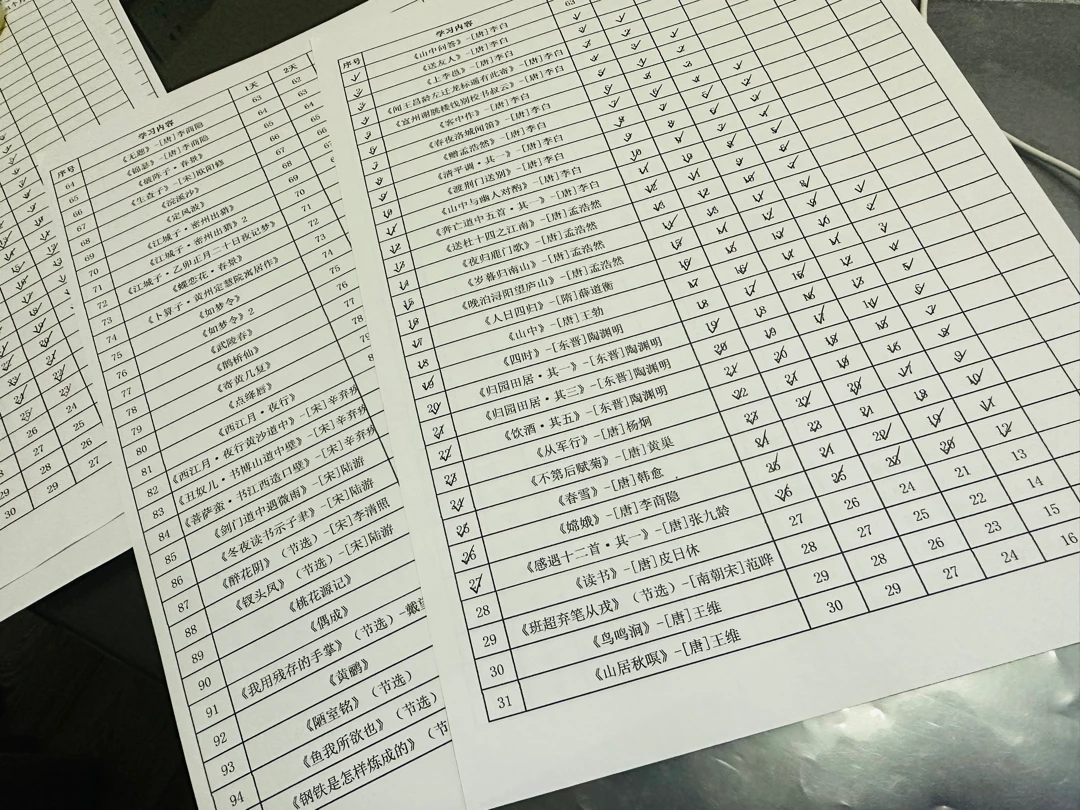 学习内容
序号
《山中问答》-[唐]李白
《送友人》-[唐]李白
《上李邕》-[唐]李白
《闻王昌龄左迁龙标遥有此寄》-[唐]李白
《宣州谢朓楼饯别校书叔云》-[唐]李白
《客中作》-[唐]李白
《春夜洛城闻笛》-[唐]李白
《赠孟浩然》-[唐]李白
《清平调·其一》-[唐]李白
《渡荆门送别》-[唐]李白
《山中与幽人对酌》-[唐]李白
《奔亡道中五首·其一》-[唐]李白
《送杜十四之江南》-[唐]孟浩然
《夜归鹿门歌》-[唐]孟浩然
《岁暮归南山》-[唐]孟浩然
《晚泊浔阳望庐山》-[唐]孟浩然
《人日四归》-[隋]薛道衡
18 《山中》-[唐]王勃
19 《四时》-[东晋]陶渊明
20 《归园田居·其一》-[东晋]陶渊明
21 《归园田居·其三》-[东晋]陶渊明
22 《饮酒·其五》-[东晋]陶渊明
23 《从军行》-[唐]杨炯
24 《不第后赋菊》-[唐]黄巢
25 《春雪》-[唐]韩愈
26 《嫦娥》-[唐]李商隐
27 《感遇十二首·其一》-[唐]张九龄
28 《读书》-[唐]皮日休 27 26 24 22 14
29 《班超弃笔从戎》（节选）-[南朝宋]范晔 28 27 25 23 15
30 《鸟鸣涧》-[唐]王维 29 28 26 24 16
31 《山居秋暝》-[唐]王维 30 29 27
序号 学习内容 1天 2天
64 《无题》-[唐]李商隐 63 62
65 《锦瑟》-[唐]李商隐 64 63
66 《破阵子·春景》 65 64
67 《生查子》-[宋]欧阳修 66
68 《浣溪沙》 67
69 《定风波》 68
70 《江城子·密州出猎》 69
71 《江城子·密州出猎》2 70
72 《江城子·乙卯正月二十日夜记梦》 71
73 《蝶恋花·春景》 72
74 《卜算子·黄州定慧院寓居作》 73
75 《如梦令》 74
76 《如梦令》2 75
77 《武陵春》 76
78 《鹊桥仙》 77
79 《寄黄几复》 78
80 《点绛唇》
81 《西江月·夜行》
82 《西江月·夜行黄沙道中》-[宋]辛弃疾
83 《丑奴儿·书博山道中壁》-[宋]辛弃疾
84 《菩萨蛮·书江西造口壁》-[宋]辛弃疾
85 《剑门道中遇微雨》-[宋]陆游
86 《冬夜读书示子聿》-[宋]陆游
87 《醉花阴》（节选）-[宋]李清照
88 《钗头凤》（节选）-[宋]陆游
89 《桃花源记》
90 《偶成》
91 《我用残存的手掌》（节选）-戴望
92 《黄鹂》
93 《陋室铭》（节选）
94 《鱼我所欲也》（节选）
《钢铁是怎样炼成的》（节